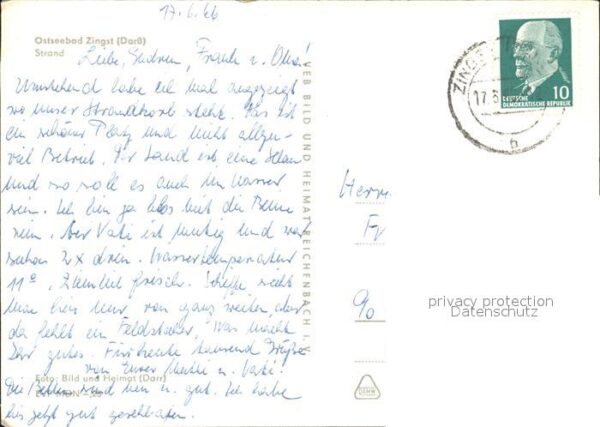 17.6.66
Ostseebad Zingst (Darß)
Strand
Liebe Gudrun, Frank u. Oma!
Umstehend habe ich mal angezeigt
wo unser Strandkorb steht. Hier ist
ein schöner Platz und nicht allzu-
viel Betrieb. Der Sand ist eine Schau
und so soll es auch im Wasser
sein. Ich bin ja blos mit die Beine
rein. Aber Vati ist mutig und war
schon 2x drin. Wassertemperatur
11°. Ziemlich frisch. Schiffe sieht
man hier nur von ganz weitem aber
da fehlt ein Feldstecher. Was macht
Ihr gutes. Für heute tausend Grüße
von Eurer Mutti u. Vati.
Foto: Bild und Heimat (Darr)
Die Betten sind hier u. gut. Ich habe
bis jetzt gut geschlafen.
VEB BILD UND HEIMAT REICHENBACH I. V.
ZINGST
17.6.
b
10
DEUTSCHE
DEMOKRATISCHE REPUBLIK
Herrn
Fr
c/o
privacy protection
Datenschutz